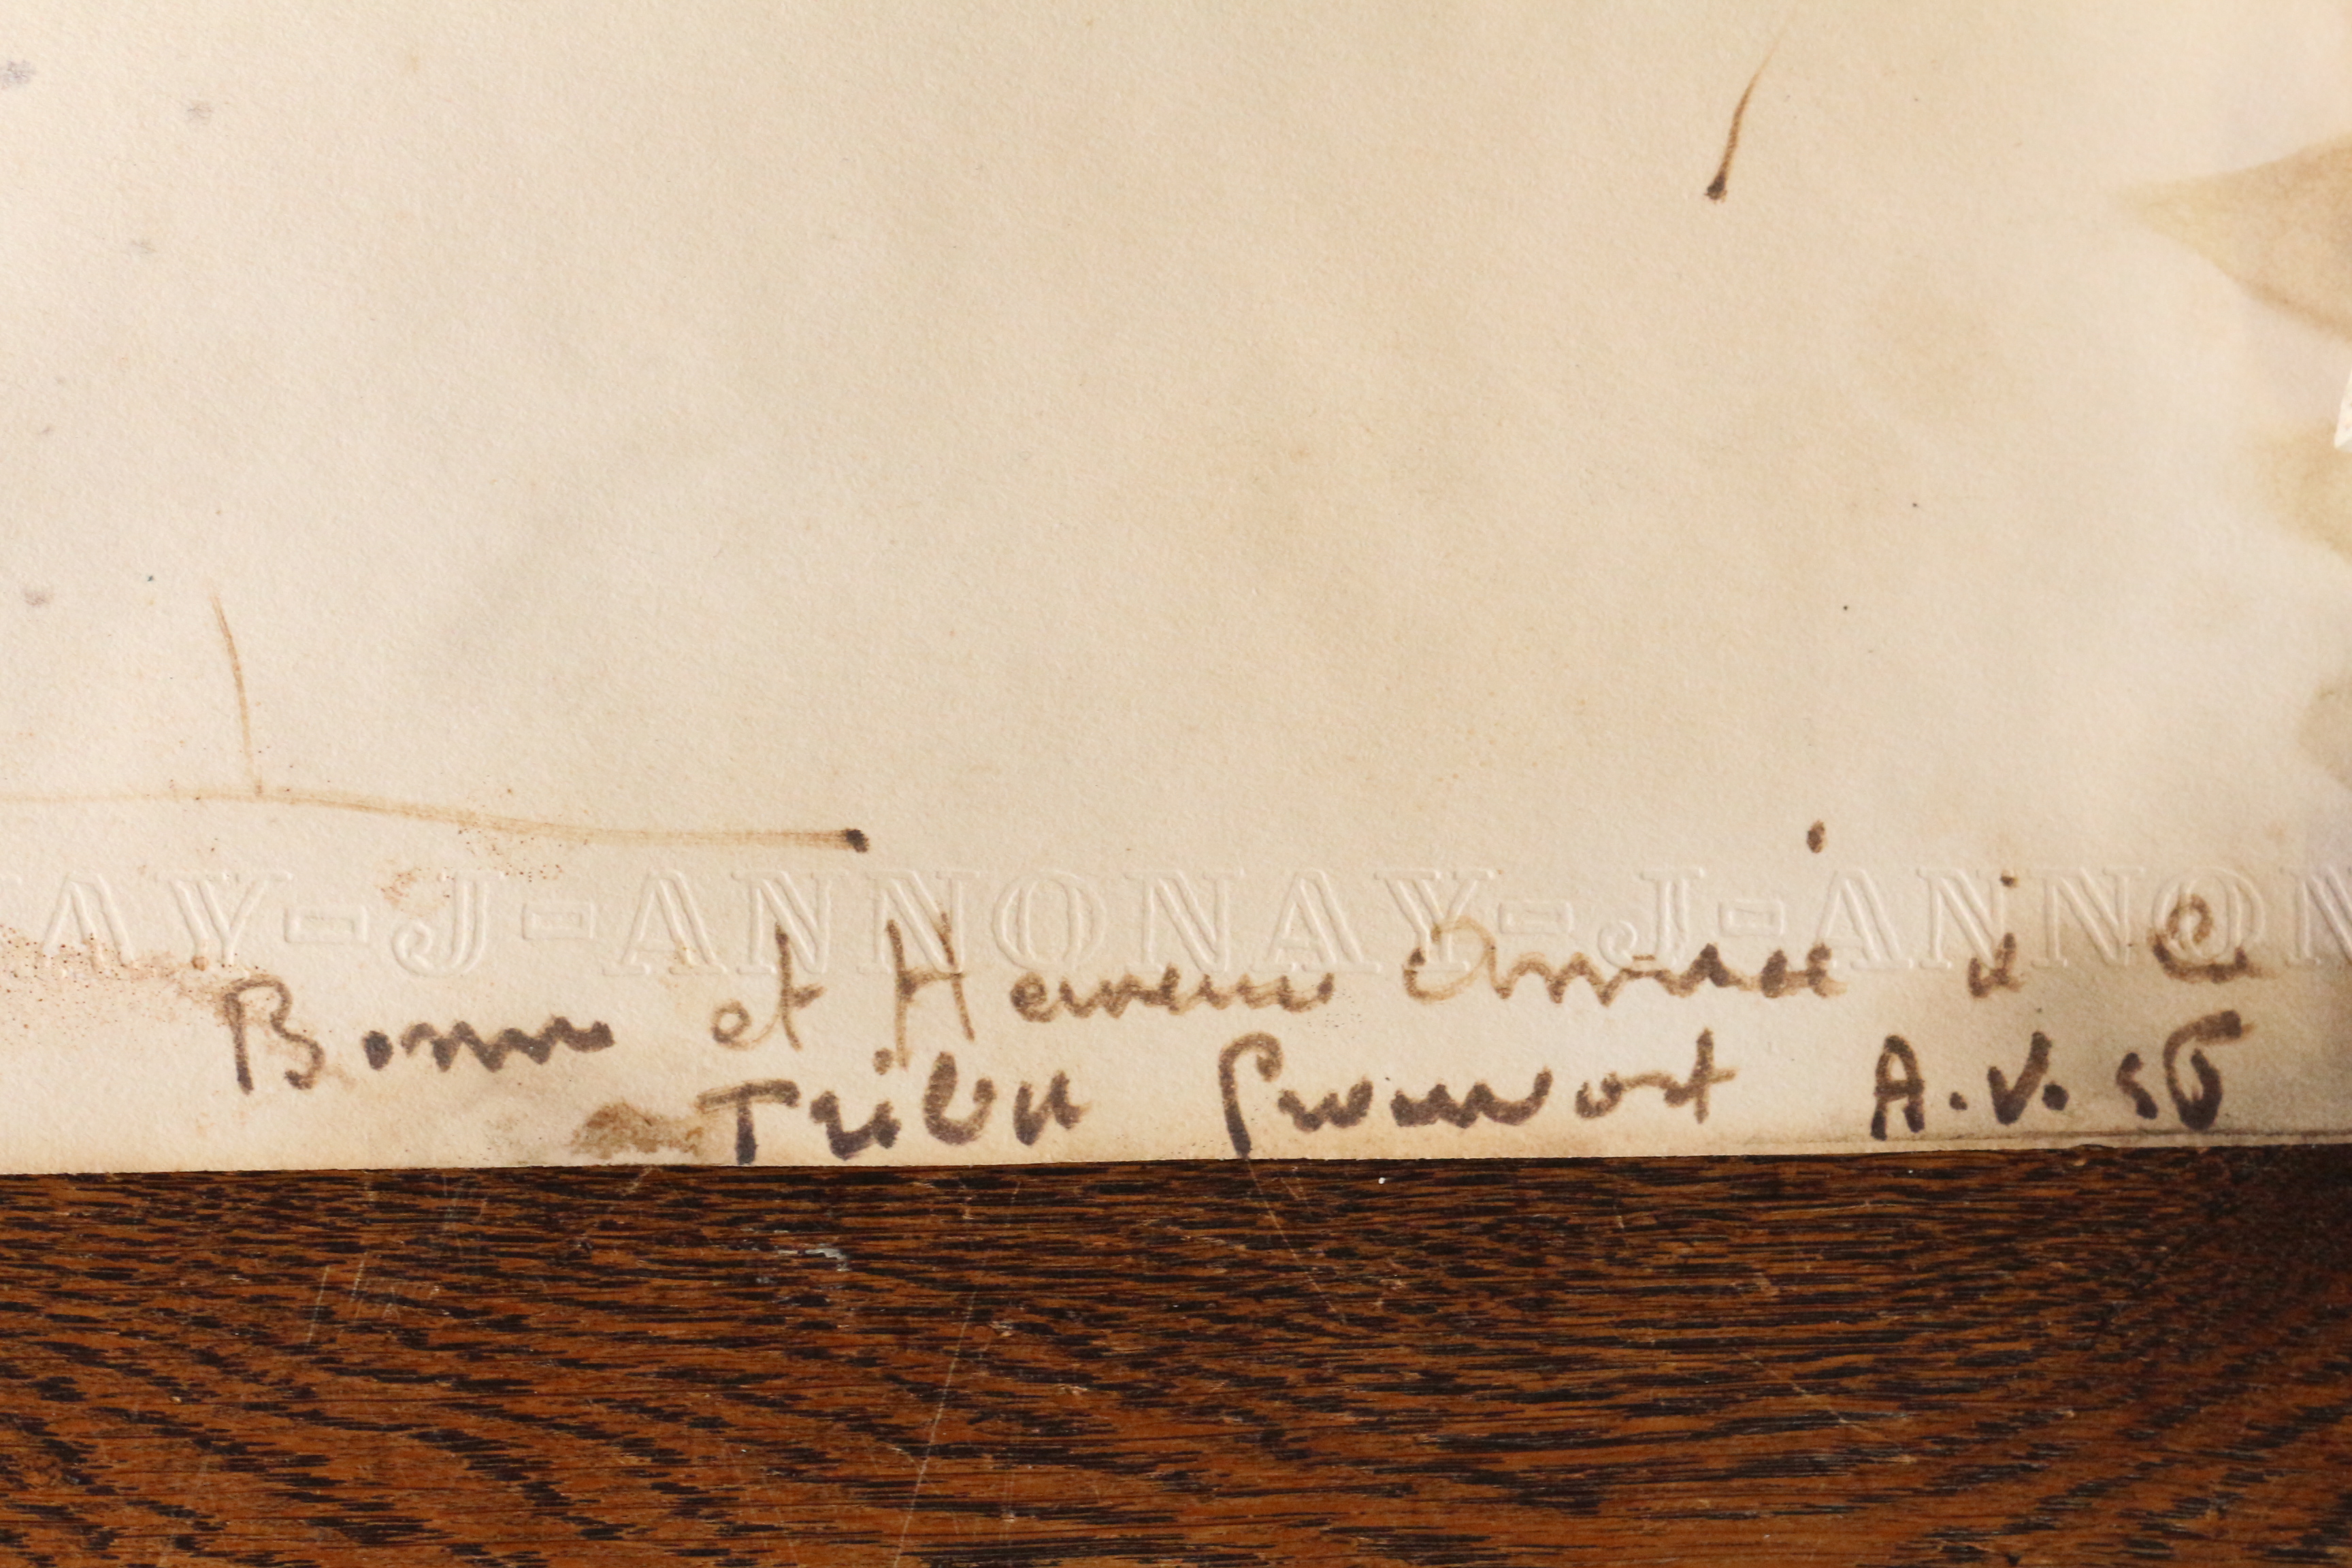 AY-J-ANNONAY-J-ANNON
Bonne et Heureuse Année à la
Tribu A.V. 56